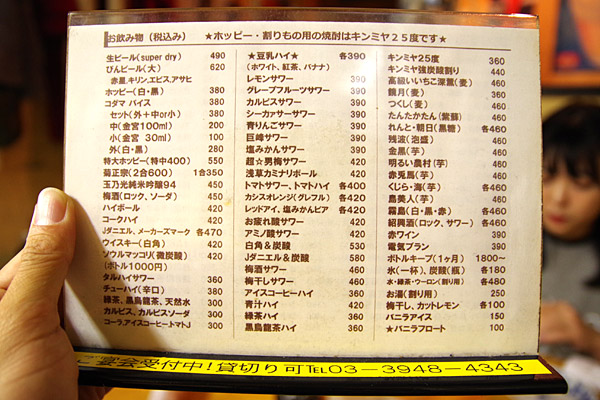 お飲み物（税込み）　★ホッピー・割りもの用の焼酎はキンミヤ２５度です★
生ビール(super dry)　490
びんビール(大)　620
赤星,キリン,エビス,アサヒ
ホッピー(白・黒)　380
コダマ バイス　380
セット(外＋中or小)　380
中(金宮100ml)　200
小(金宮 30ml)　100
外(白・黒)　280
特大ホッピー(特中400)　550
菊正宗(2合600)　1合350
玉乃光純米吟醸94　450
梅酒(ロック、ソーダ)　450
ハイボール　420
コークハイ　420
Jダニエル、メーカーズマーク　各470
ウイスキー(白角)　420
ソウルマッコリ(微炭酸)　420
(ボトル1000円)
タルハイサワー　360
チューハイ(辛口)　380
緑茶、黒烏龍茶、天然水　300
カルピス、カルピスソーダ　300
コーラ,アイスコーヒートマトJ　300
★豆乳ハイ★　各390
(ホワイト、紅茶、バナナ)
レモンサワー　390
グレープフルーツサワー　390
カルピスサワー　390
シークァサーサワー　390
青りんごサワー　390
巨峰サワー　390
塩みかんサワー　390
超☆男梅サワー　420
浅草カミナリボール　420
トマトサワー、トマトハイ　各400
カシスオレンジ(グレフル)　各420
レッドアイ、塩みかんビア　各420
お疲れ酸サワー　420
アミノ酸サワー　420
白角＆炭酸　530
Jダニエル＆炭酸　580
梅酒サワー　360
梅干しサワー　360
アイスコーヒーハイ　360
青汁ハイ　420
緑茶ハイ　360
黒烏龍茶ハイ　360
キンミヤ25度　360
キンミヤ強炭酸割り　440
高級いいちこ深薫(麦)　460
鏡月(麦)　360
つくし(麦)　460
たんたかたん(紫蘇)　460
れんと・朝日(黒糖)　各460
残波(泡盛)　460
金黒(芋)　460
明るい農村(芋)　460
赤兎馬(芋)　460
くじら・海(芋)　各460
島美人(芋)　460
霧島(白・黒・赤)　各460
紹興酒(ロック、サワー)　各460
赤ワイン　390
電気ブラン　390
ボトルキープ(1ヶ月)　1800〜
氷(一杯)、炭酸(瓶)　各180
水・緑茶・ウーロン(割り用)　各480
お湯(割り用)　250
梅干し、カットレモン　各100
バニラアイス　150
★バニラフロート　100
宴会受付中！貸切り可TEL０３－３９４８－４３４３